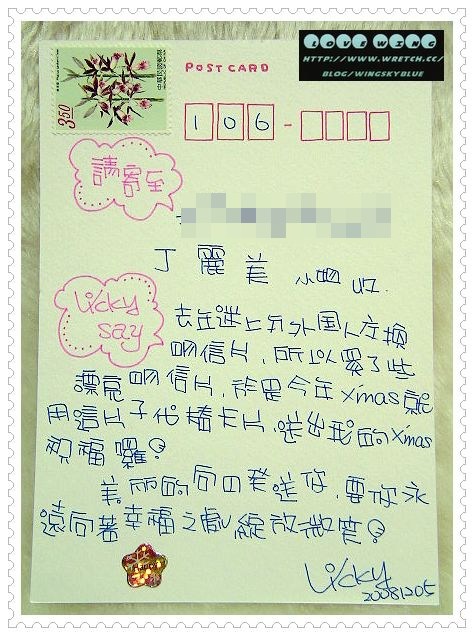 LOVE WING
HTTP://WWW.WRETCH.CC/
BLOG/WINGSKYBLUE
POST CARD
3.50
106-
請寄至
丁麗美 小姐 收.
Vicky
say
去年迷上了外国人交換
明信片，所以買了些
漂亮明信片，於是今年X'mas就
用這片子代替卡片，送出我的X'mas
祝福囉！
美丽的向日葵送你，要你永
遠向著幸福之處綻放微笑！
Vicky
20081205